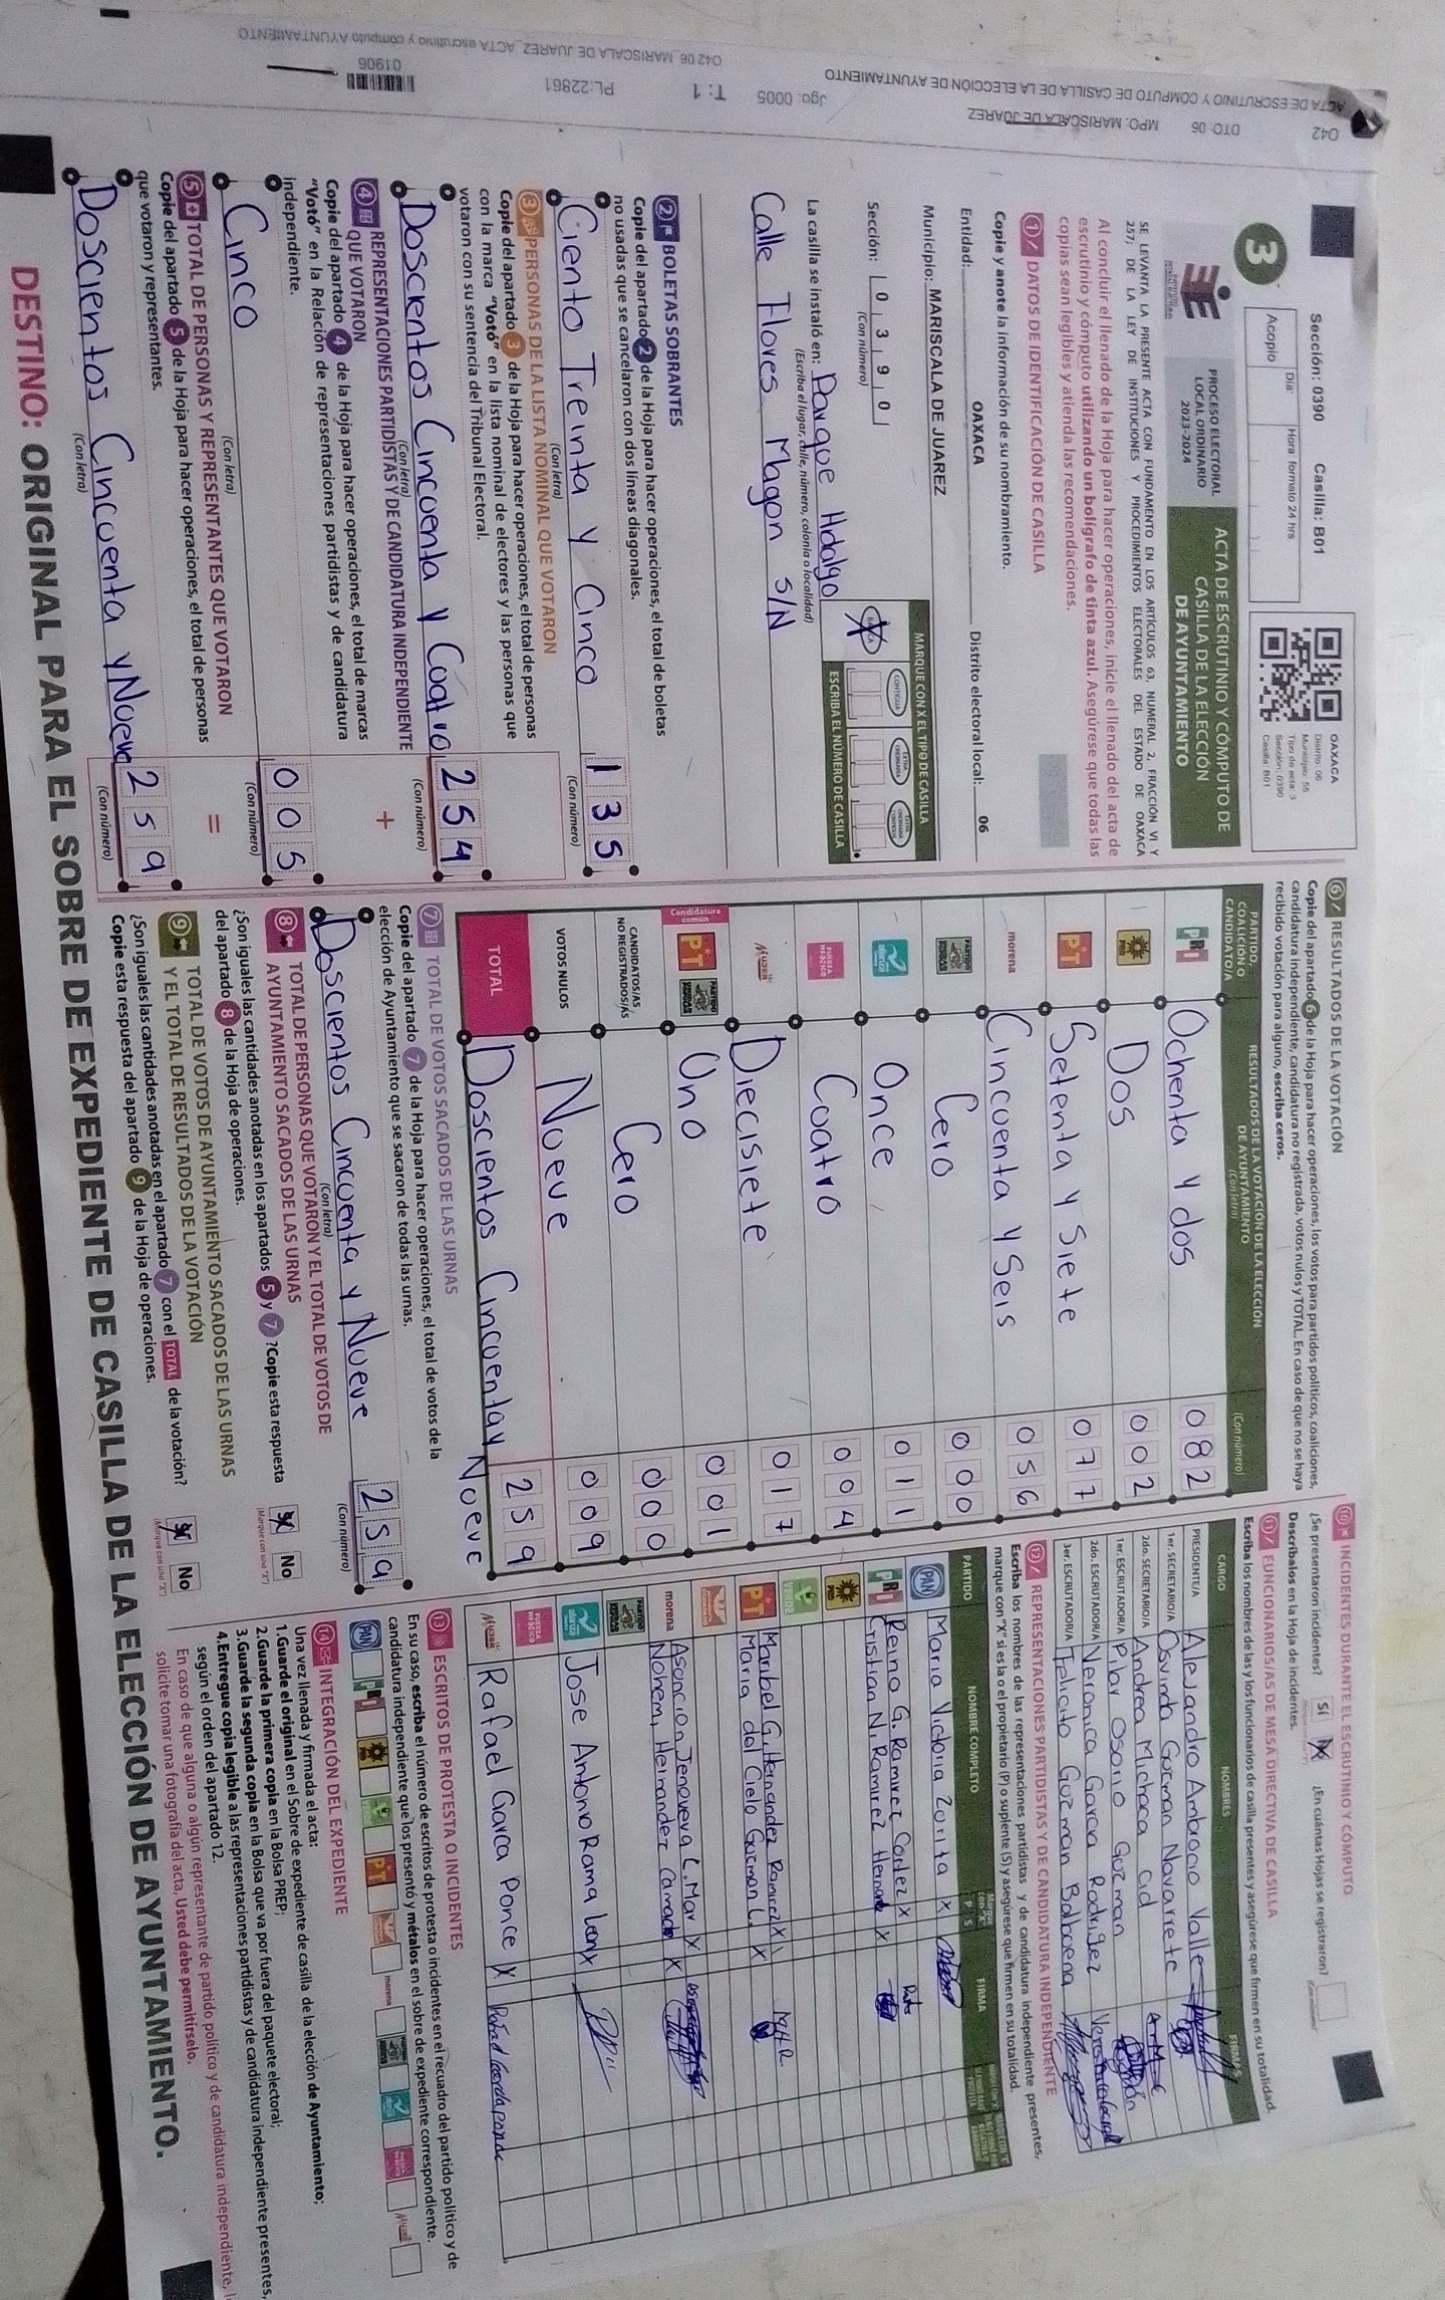 042 DTO: 06 MPO: MARISCALA DE JUAREZ
ACTA DE ESCRUTINIO Y COMPUTO DE CASILLA DE LA ELECCIÓN DE AYUNTAMIENTO
Jgo: 0005 T: 1 PL:22861 01906
042 06_MARISCALA DE JUAREZ_ACTA escrutinio y computo AYUNTAMIENTO
Sección: 0390 Casilla: B01
Acopio Día: Hora: formato 24 hrs
OAXACA
Distrito: 06
Municipio: 55
Tipo de acta: 3
Sección: 0390
Casilla: B01
3
PROCESO ELECTORAL
LOCAL ORDINARIO
2023-2024
ACTA DE ESCRUTINIO Y CÓMPUTO DE
CASILLA DE LA ELECCIÓN
DE AYUNTAMIENTO
SE LEVANTA LA PRESENTE ACTA CON FUNDAMENTO EN LOS ARTÍCULOS 63, NUMERAL 2, FRACCIÓN VI Y
257; DE LA LEY DE INSTITUCIONES Y PROCEDIMIENTOS ELECTORALES DEL ESTADO DE OAXACA
Al concluir el llenado de la Hoja para hacer operaciones, inicie el llenado del acta de
escrutinio y cómputo utilizando un bolígrafo de tinta azul. Asegúrese que todas las
copias sean legibles y atienda las recomendaciones.
1 DATOS DE IDENTIFICACIÓN DE CASILLA
Copie y anote la información de su nombramiento.
Entidad: OAXACA Distrito electoral local: 06
Municipio: MARISCALA DE JUAREZ
MARQUE CON X EL TIPO DE CASILLA
Sección: 0 3 9 0
(Con número)
ESCRIBA EL NÚMERO DE CASILLA
La casilla se instaló en: Parque Hidalgo
(Escriba el lugar, calle, número, colonia o localidad)
Calle Flores Magon S/N
2 BOLETAS SOBRANTES
Copie del apartado 2 de la Hoja para hacer operaciones, el total de boletas
no usadas que se cancelaron con dos líneas diagonales.
Ciento Treinta y Cinco 135
(Con letra) (Con número)
3 PERSONAS DE LA LISTA NOMINAL QUE VOTARON
Copie del apartado 3 de la Hoja para hacer operaciones, el total de personas
con la marca "Votó" en la lista nominal de electores y las personas que
votaron con su sentencia del Tribunal Electoral.
Doscientos Cincuenta y Cuatro 254
(Con letra) (Con número)
4 REPRESENTACIONES PARTIDISTAS Y DE CANDIDATURA INDEPENDIENTE
QUE VOTARON +
Copie del apartado 4 de la Hoja para hacer operaciones, el total de marcas
"Votó" en la Relación de representaciones partidistas y de candidatura
independiente.
Cinco 005
(Con letra) (Con número)
5 TOTAL DE PERSONAS Y REPRESENTANTES QUE VOTARON =
Copie del apartado 5 de la Hoja para hacer operaciones, el total de personas
que votaron y representantes.
Doscientos Cincuenta y Nueve 259
(Con letra) (Con número)
6 RESULTADOS DE LA VOTACIÓN
Copie del apartado 6 de la Hoja para hacer operaciones, los votos para partidos políticos, coaliciones,
candidatura independiente, candidatura no registrada, votos nulos y TOTAL. En caso de que no se haya
recibido votación para alguno, escriba ceros.
PARTIDO, COALICIÓN O CANDIDATO/A RESULTADOS DE LA VOTACIÓN DE LA ELECCIÓN DE AYUNTAMIENTO (Con letra) (Con número)
PRI Ochenta y dos 082
PRD Dos 002
PT Setenta y Siete 077
morena Cincuenta y Seis 056
Cero 000
nueva alianza Once 011
FUERZA MÉXICO Cuatro 004
Mujer Diecisiete 017
Candidatura común PT Uno 001
CANDIDATOS/AS NO REGISTRADOS/AS Cero 000
VOTOS NULOS Nueve 009
TOTAL Doscientos Cincuenta y Nueve 259
7 TOTAL DE VOTOS SACADOS DE LAS URNAS
Copie del apartado 7 de la Hoja para hacer operaciones, el total de votos de la
elección de Ayuntamiento que se sacaron de todas las urnas.
Doscientos Cincuenta y Nueve 259
(Con letra) (Con número)
8 TOTAL DE PERSONAS QUE VOTARON Y EL TOTAL DE VOTOS DE
AYUNTAMIENTO SACADOS DE LAS URNAS
¿Son iguales las cantidades anotadas en los apartados 5 y 7 ? Copie esta respuesta
del apartado 8 de la Hoja de operaciones.
No
(Marque con una "X")
9 TOTAL DE VOTOS DE AYUNTAMIENTO SACADOS DE LAS URNAS
Y EL TOTAL DE RESULTADOS DE LA VOTACIÓN
¿Son iguales las cantidades anotadas en el apartado 7 con el TOTAL de la votación?
Copie esta respuesta del apartado 9 de la Hoja de operaciones.
No
(Marque con una "X")
10 INCIDENTES DURANTE EL ESCRUTINIO Y CÓMPUTO
¿Se presentaron incidentes? Sí ¿En cuántas Hojas se registraron?
Descríbalos en la Hoja de incidentes.
11 FUNCIONARIOS/AS DE MESA DIRECTIVA DE CASILLA
Escriba los nombres de las y los funcionarios de casilla presentes y asegúrese que firmen en su totalidad.
CARGO NOMBRES FIRMAS
PRESIDENTE/A Alejandro Ambrocio Valle
1er. SECRETARIO/A Osvinda Guzman Navarrete
2do. SECRETARIO/A Andrea Michaca Cid
1er. ESCRUTADOR/A Pilar Osorio Guzman
2do. ESCRUTADOR/A Veronica Garcia Rodriguez
3er. ESCRUTADOR/A Felicito Guzman Balbuena
12 REPRESENTACIONES PARTIDISTAS Y DE CANDIDATURA INDEPENDIENTE
Escriba los nombres de las representaciones partidistas y de candidatura independiente presentes,
marque con "X" si es la o el propietario (P) o suplente (S) y asegúrese que firmen en su totalidad.
PARTIDO NOMBRE COMPLETO P S FIRMA
PAN Maria Victoria Zurita X
PRI Reina G. Ramirez Cortez X
Cristian N. Ramirez Hernand X
PRD
VERDE
PT Maribel G. Hernandez Ramirez X
Maria del Cielo Guzman L. X
morena Asoncion Jenoveva C. Mar X
Nohemi Hernandez Camado X
nueva alianza Jose Antonio Rama Leon X
FUERZA MÉXICO
Mujer Rafael Garca Ponce X
13 ESCRITOS DE PROTESTA O INCIDENTES
En su caso, escriba el número de escritos de protesta o incidentes en el recuadro del partido político y de
candidatura independiente que los presentó y métalos en el sobre de expediente correspondiente.
14 INTEGRACIÓN DEL EXPEDIENTE
Una vez llenada y firmada el acta:
1.Guarde el original en el Sobre de expediente de casilla de la elección de Ayuntamiento;
2.Guarde la primera copia en la Bolsa PREP;
3.Guarde la segunda copia en la Bolsa que va por fuera del paquete electoral;
4.Entregue copia legible a las representaciones partidistas y de candidatura independiente presentes,
según el orden del apartado 12.
En caso de que alguna o algún representante de partido político y de candidatura independiente,
solicite tomar una fotografía del acta, Usted debe permitírselo.
DESTINO: ORIGINAL PARA EL SOBRE DE EXPEDIENTE DE CASILLA DE LA ELECCIÓN DE AYUNTAMIENTO.